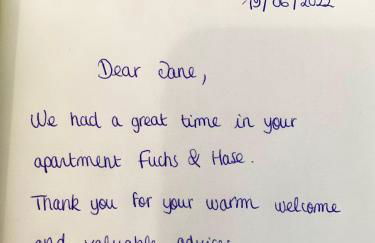 19/06/2022
Dear Jane,
We had a great time in your
apartment Fuchs & Hase.
Thank you for your warm welcome
and valuable advices